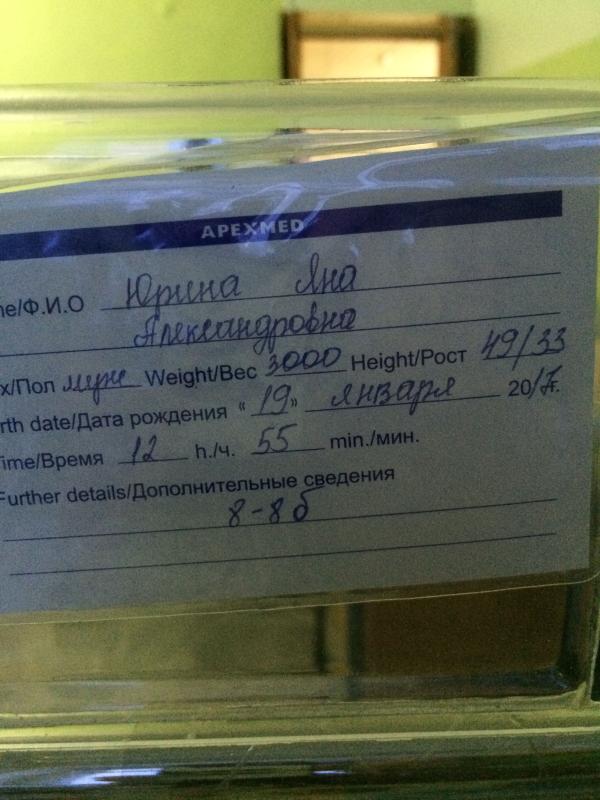 APEXMED
ne/Ф.И.О Юрина Яна
Александровна
x/Пол муж Weight/Вес 3000 Height/Рост 49/33
rth date/Дата рождения « 19 » января 2017г.
Time/Время 12 h./ч. 55 min./мин.
Further details/Дополнительные сведения
8-8б